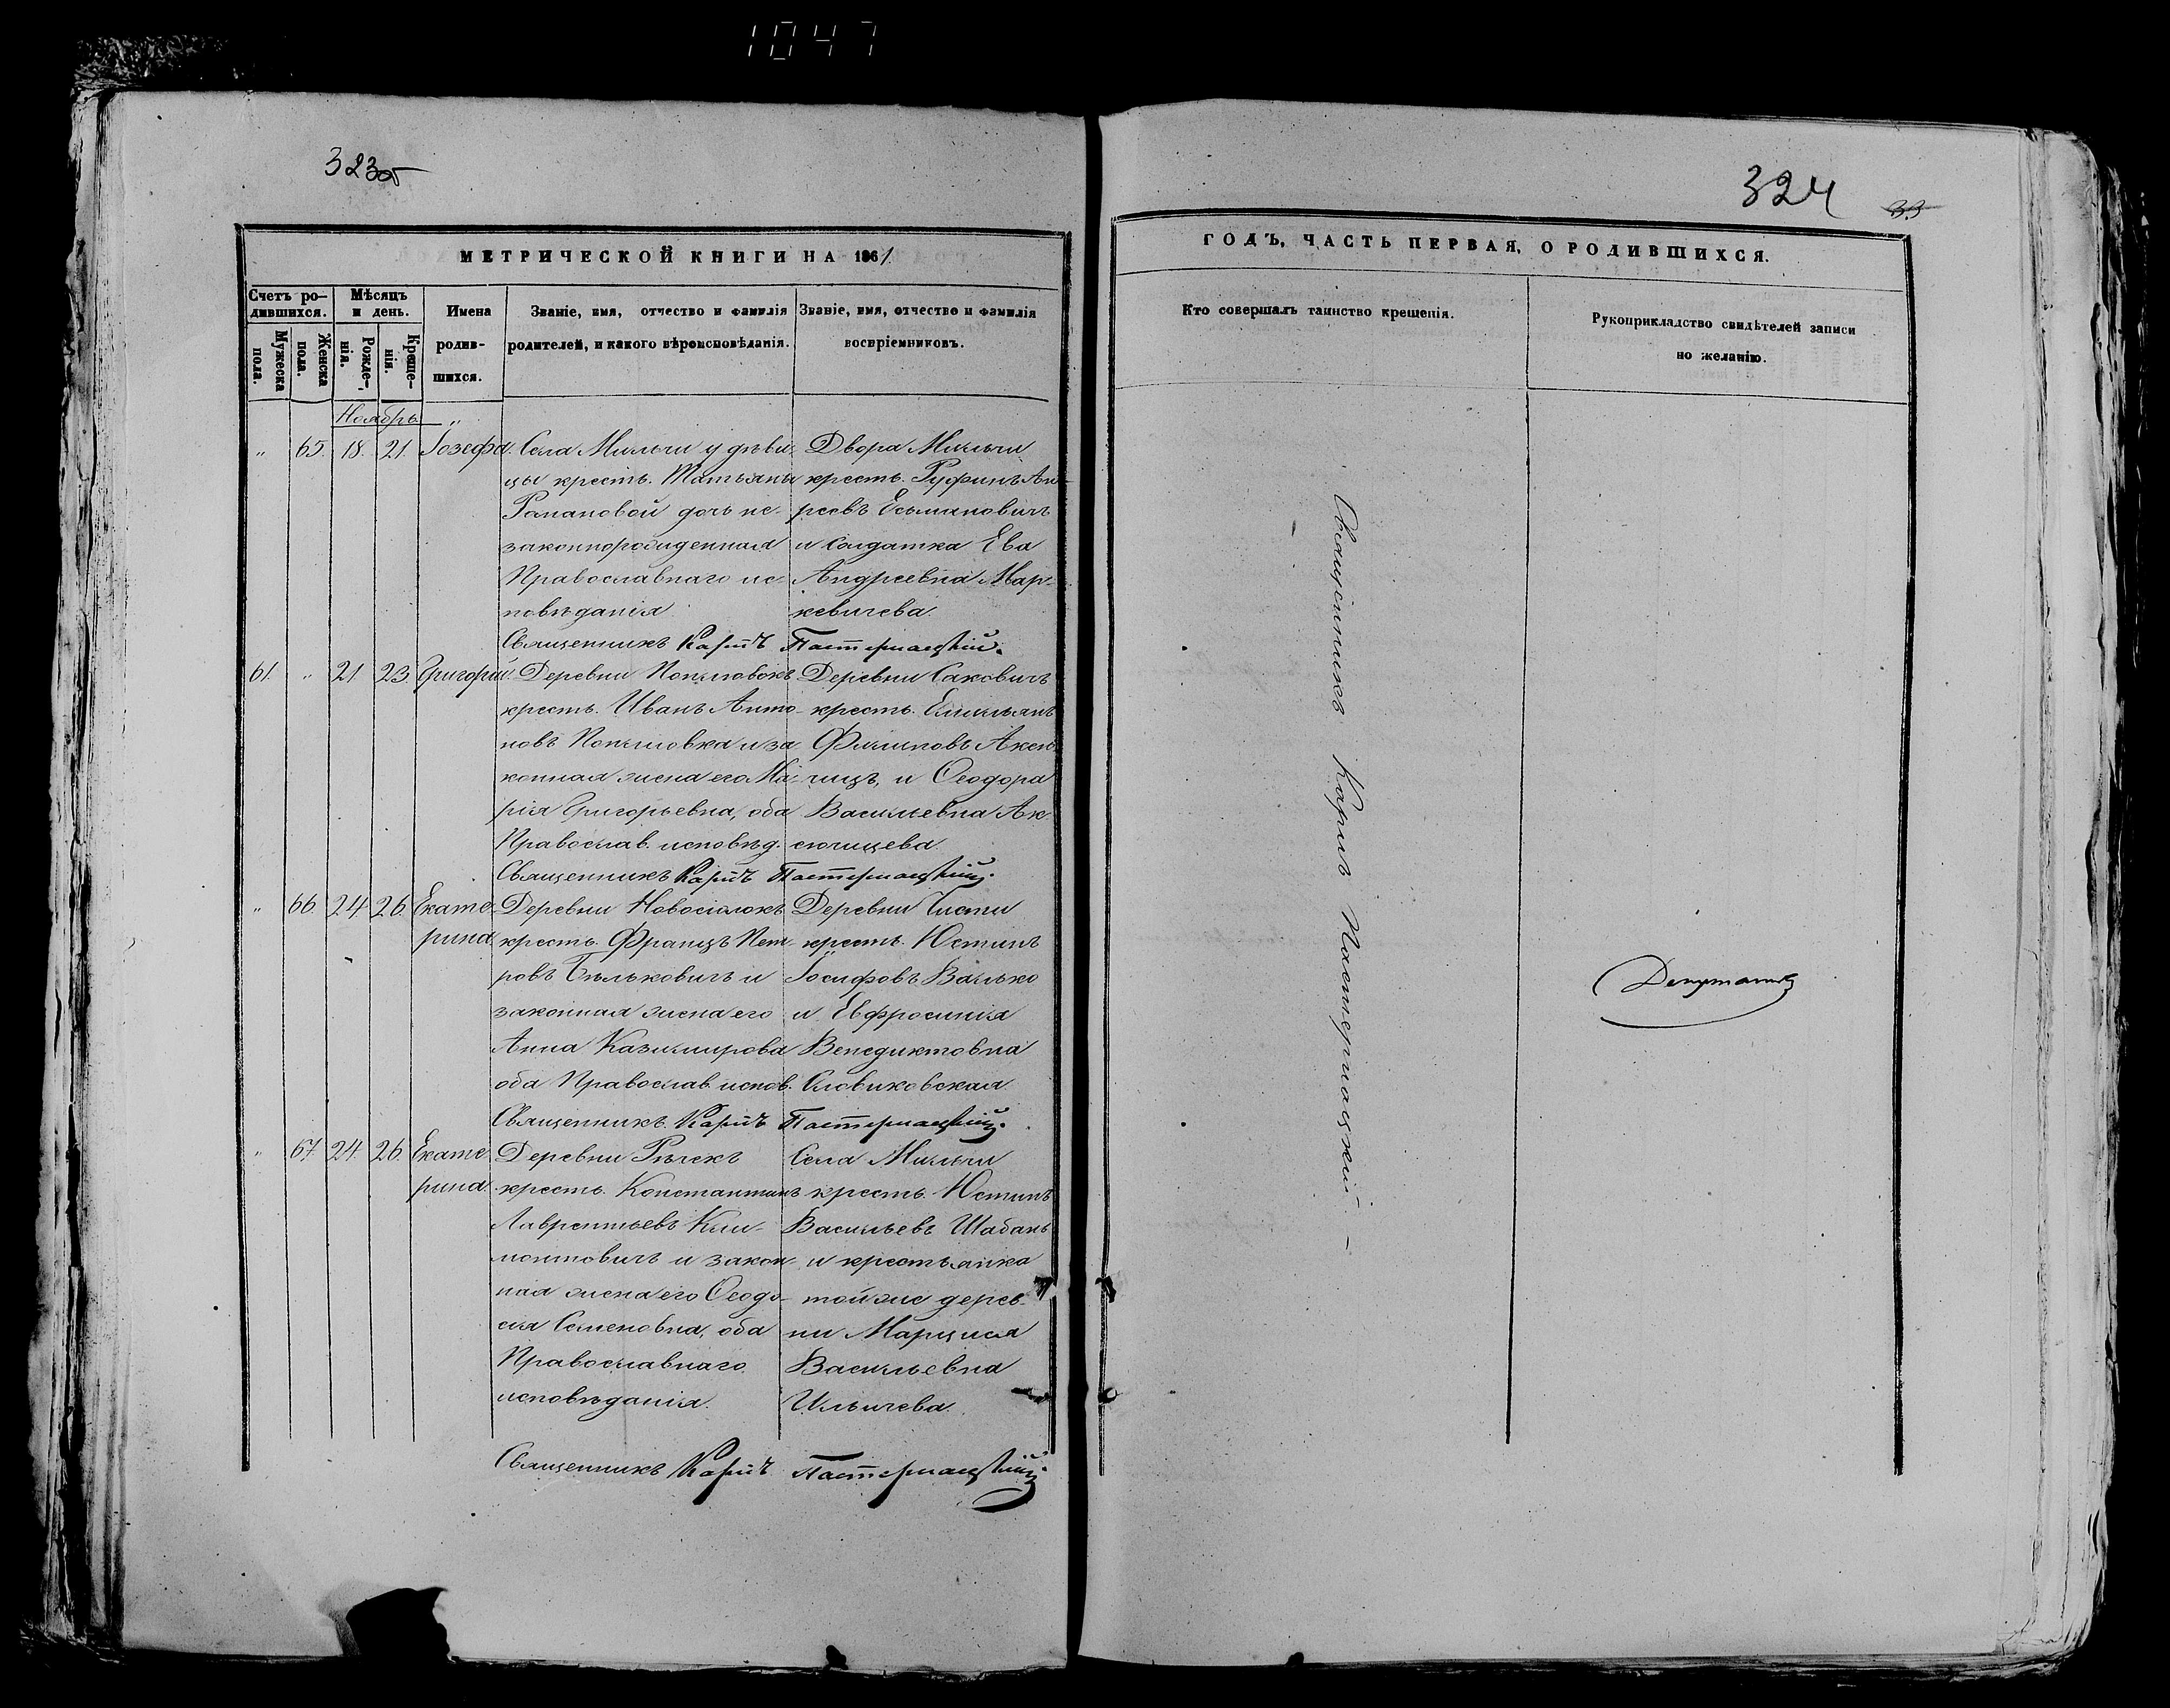 1047
323 об
324
33
МЕТРИЧЕСКОЙ КНИГИ НА 1861
ГОДЪ, ЧАСТЬ ПЕРВАЯ, О РОДИВШИХСЯ.
Счетъ ро-
дившихся.
Мужеска
пола.
Женска
пола.
Мѣсяцъ
и день.
Рожде-
нія.
Креще-
нія.
Имена
родив-
шихся.
Званіе, имя, отчество и фамилія
родителей, и какого вѣроисповѣданія.
Званіе, имя, отчество и фамилія
воспріемниковъ.
Кто совершалъ таинство крещенія.
Рукоприкладство свидѣтелей записи
по желанію.
Ноябрь „
„ 65. 18. 21. Іозефа.
Села Мильчи у дѣви-
цы крест. Татьяны
Рапановой дочь не-
законнорожденная
Православнаго ис-
повѣданія
Двора Мильчи
крест. Руфинъ Ан-
реевъ Есьмановичъ
и Солдатка Ева
Андреевна Мар-
кевичева.
Священникъ Карпъ Пастернацкій.
61. „ 21 23 Григорій.
Деревни Попиловокъ
крест. Иванъ Анто-
новъ Попиловка и за
конная жена его Ма-
рія Григорьевна, оба
Православ. исповѣд.
Деревни Саковичъ
крест. Емильянъ
Филиповъ Аксю
чицъ, и Ѳеодора
Васильевна Ак-
сючицева.
Священникъ Карпъ Пастернацкій.
„ 66. 24 26. Екате-
рина
Деревни Новосіолокъ
крест. Францъ Пет-
ровъ Бѣльковичъ и
законная жена его
Анна Казимирова
оба Православ. испов.
Деревни Чисти
крест. Юстинъ
Іосифовъ Валько
и Евфросинія
Венедиктовна
Словиковская.
Священникъ Карпъ Пастернацкій.
„ 67. 24. 26. Екате
рина.
Деревни Рѣчекъ
крест. Константинъ
Лаврентьевъ Кли-
монтовичъ и закон-
ная жена его Ѳеодо-
сія Семеновна, оба
Православнаго
исповѣданія.
Села Мильчи
крест. Юстинъ
Васильевъ Шабанъ
и крестьянка
той же дерев-
ни Марцися
Васильевна
Ильичева.
Священникъ Карпъ Пастернацкій.
Священникъ Карпъ Пастернацкій –